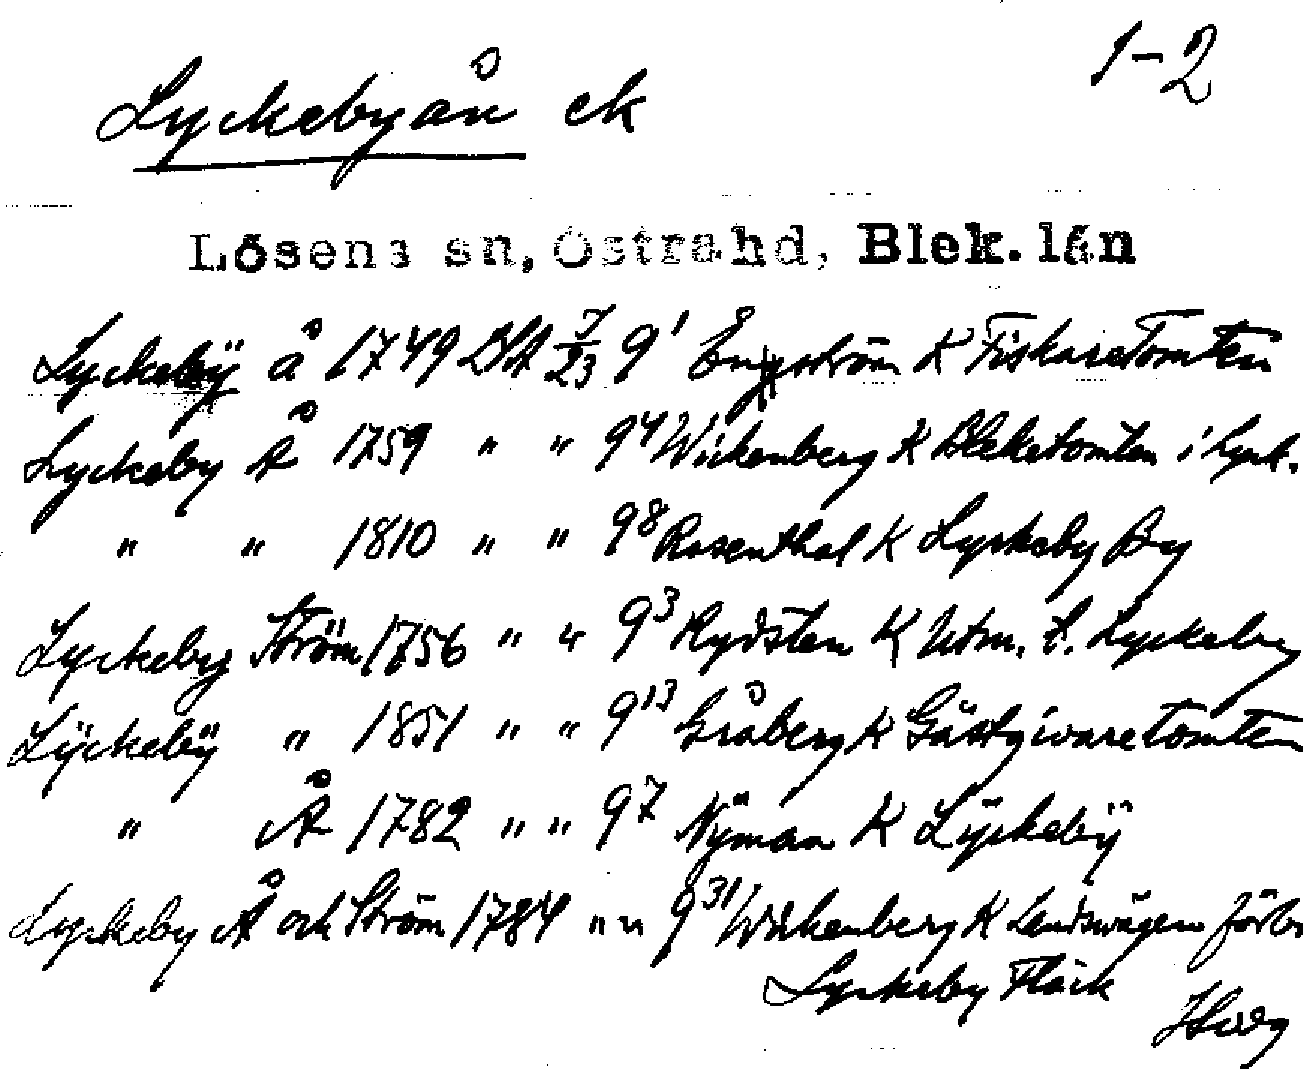 1-2
Lyckebyån ek
Lösens sn, Östra hd, Blek. län
Lyckebÿ å 1749 LSA 7/23 9¹ Engström K Fiskaretomten
Lyckeby Å 1759 " " 9⁴ Wickenberg K Bleketomten i Lyck.
" " 1810 " " 9⁸ Rosenthal K Lyckeby By
Lyckeby Ström 1756 " " 9³ Rydsten K Utm. t. Lyckeby
Lÿckebÿ " 1851 " " 9¹³ Gråberg K Gästgivaretomten
" Å 1782 " " 9⁷ Nÿman K Lÿckebÿ
Lyckeby Å och Ström 1784 " " 9³¹ Wickenberg K Landsvägen förbi
Lyckeby Fläck